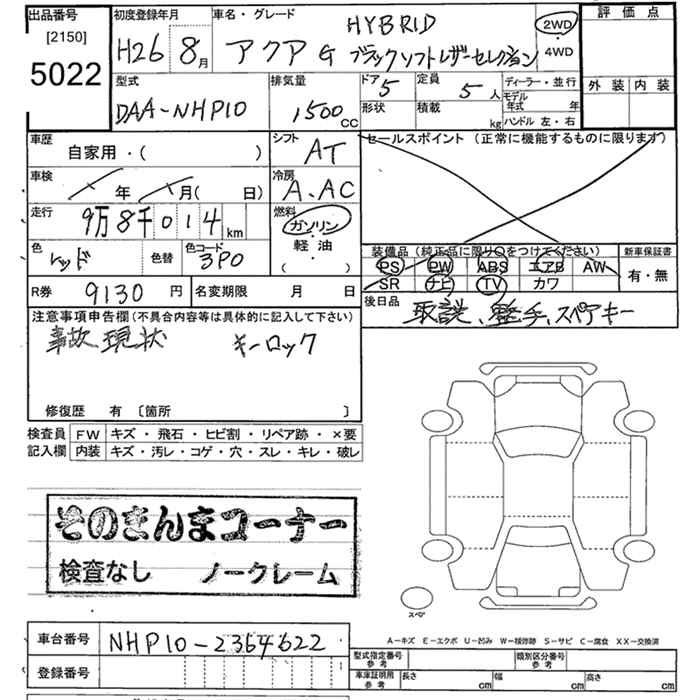 出品番号
[2150]
5022
初度登録年月
H26 8月
車名・グレード
HYBRID
アクア G ブラックソフトレザーセレクション
2WD
4WD
評価点
外装 内装
型式
DAA-NHP10
排気量
1500cc
ドア 5
形状
定員 5人
積載 kg
ディーラー・並行
モデル年式 年
ハンドル 左・右
車歴
自家用・( )
シフト
AT
セールスポイント (正常に機能するものに限ります)
車検
年 月( 日)
冷房
A.AC
走行
9万8千014km
燃料
ガソリン
軽油
( ・ )
色
レッド
色替
色コード
3P0
装備品 (純正品に限り○をつけてください)
PS PW ABS エアB AW
SR ナビ TV カワ
新車保証書
有・無
R券 9130 円
名変期限 月 日
後日品
取説、整手、スペアキー
注意事項申告欄(不具合内容等は具体的に記入して下さい)
事故現状 キーロック
修復歴 有 〔箇所 〕
検査員記入欄
FW キズ・飛石・ヒビ割・リペア跡・×要
内装 キズ・汚レ・コゲ・穴・スレ・キレ・破レ
そのまんまコーナー
検査なし ノークレーム
スペア
A-キズ E-エクボ U-凹み W-補修跡 S-サビ C-腐食 XX-交換済
車台番号 NHP10-2364622
登録番号
型式指定番号 参考
類別区分番号 参考
車庫証明用 参考
長さ cm 幅 cm 高さ cm